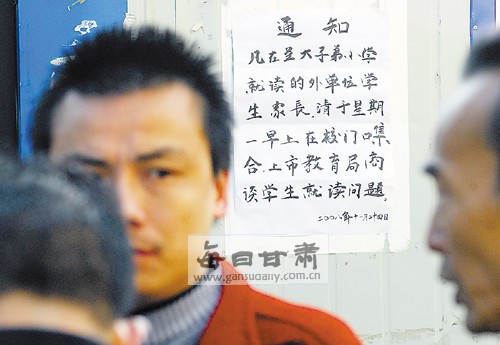 通知
凡在兰大子弟小学
就读的外单位学
生家長.请于星期
一早上在校门口集
合.上市教育局商
谈学生就读问题。
二〇〇八年十一月二十四日
每日甘肃
www.gansudaily.com.cn